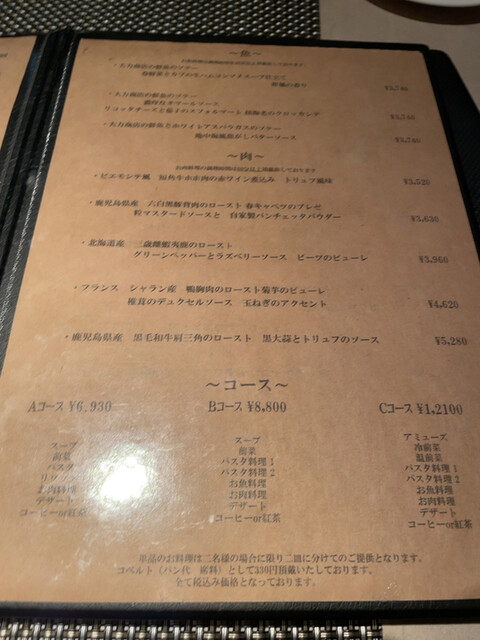 ～魚～
・大力商店の鮮魚のソテー
¥3,740
・大力商店の鮮魚のソテー
濃厚なオマールソース
¥3,740
・大力商店の鮮魚とホワイトアスパラガスのソテー
焦がしバターソース
¥3,740
～肉～
・ピエモンテ風 短角牛ホホ肉の赤ワイン煮込み トリュフ風味
¥3,520
・鹿児島県産 六白黒豚背肉のロースト 春キャベツのブレゼ
粒マスタードソースと 自家製パンチェッタパウダー
¥3,630
・北海道産 三歳蝦夷鹿のロースト
グリーンペッパーとラズベリーソース ビーツのピューレ
¥3,960
・フランス シャラン産 鴨胸肉のロースト菊芋のピューレ
椎茸のデュクセルソース 玉ねぎのアクセント
¥4,620
・鹿児島県産 黒毛和牛肩三角のロースト 黒大蒜とトリュフのソース
¥5,280
～コース～
Aコース ¥6,930
スープ
前菜
パスタ
リゾット
お肉料理
デザート
コーヒーor紅茶
Bコース ¥8,800
スープ
前菜
パスタ料理 1
パスタ料理 2
お魚料理
お肉料理
デザート
コーヒーor紅茶
Cコース ¥1,2100
アミューズ
冷前菜
温前菜
パスタ料理 1
パスタ料理 2
お魚料理
お肉料理
デザート
コーヒーor紅茶
単品のお料理は二名様の場合に限り二皿に分けてのご提供となります。
コペルト（パン代 席料）として330円頂戴いたしております。
全て税込み価格となっております。